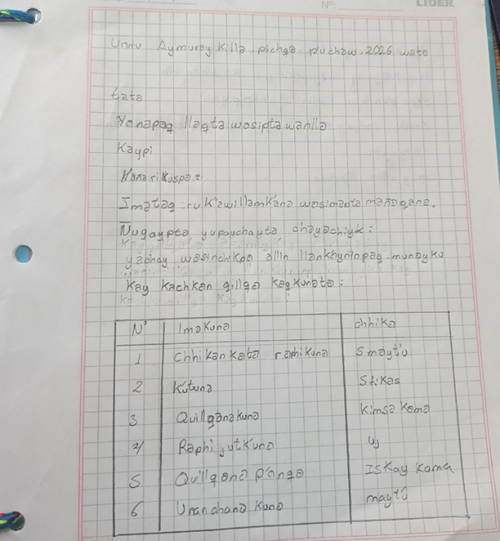 LIDER
Nº
Uruu Aymuray Killa pichga puchaw. 2026 wata
tata
Yanapaq llaqta wasipta wanlla
Kaypi
Imataq ruk'awillamkana wasimanta mañagana.
Ñugaypta yupaychayta, chayachiyk:
yachay wasinchikpa allin llank'aynin pag munayku
Kay kachkan qillga kagkunata:
Nº Imakuna chhika
1 Chhikankata raphikuna 5 mayt'u
2 Kutuna 5tikas
3 Quillganakuna Kimsa kama
4 Raphi, utkuna uj
5 Quillgana p'anga Iskay kama
6 Uranchana kuna mayt'u